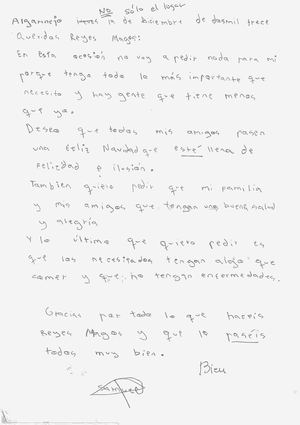 No sólo el lugar
Algarinejo 12 de diciembre de dosmil trece
Queridos Reyes Magos:
En esta ocasión no voy a pedir nada para mi
porque tengo todo lo más importante que
necesito y hay gente que tiene menos
que yo.
Deseo que todos mis amigos pasen
una feliz Navidad que esté llena de
felicidad e ilusión.
Tambien quiero pedir que mi familia
y mis amigos que tengan una buena salud
y alegría
Y lo último que quiero pedir es
que los necesitados tengan algo que
comer y que no tengan enfermedades.
Gracias por todo lo que haceis
Reyes Magos y que lo paséis
todos muy bien.
Bien
Samuel